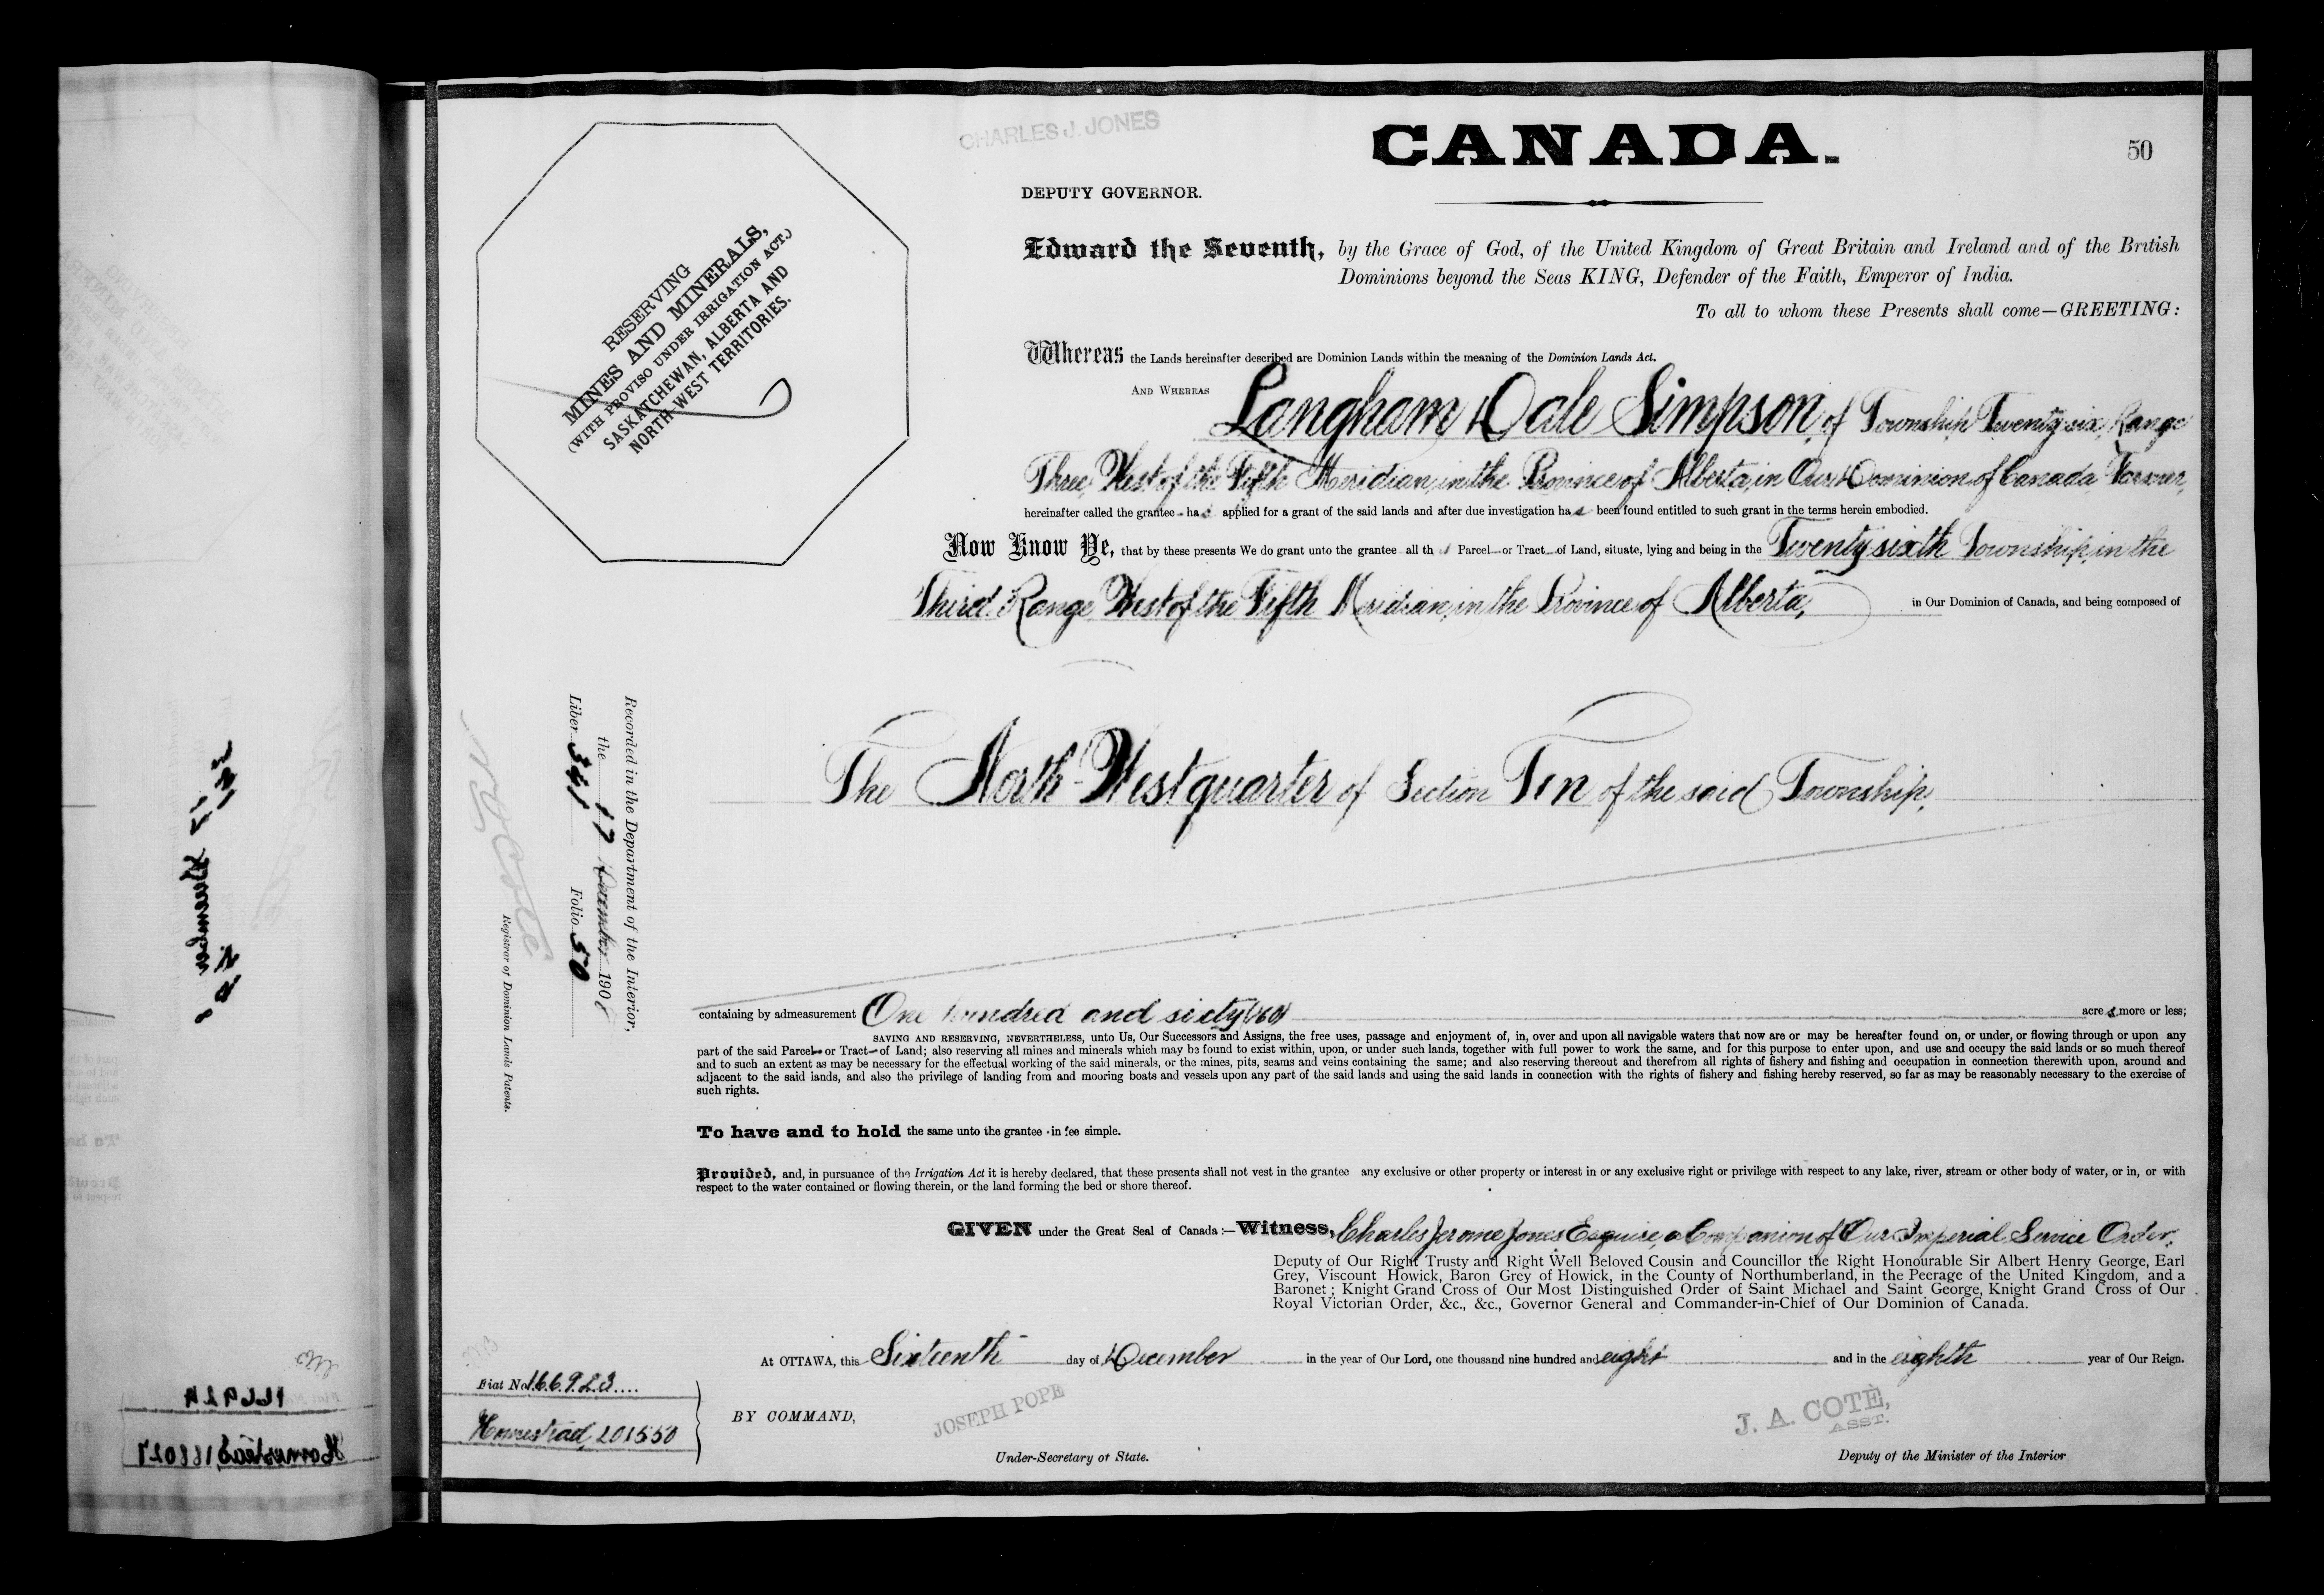 CHARLES J. JONES
CANADA.
50
DEPUTY GOVERNOR.
RESERVING
MINES AND MINERALS,
(WITH PROVISO UNDER IRRIGATION ACT.)
SASKATCHEWAN, ALBERTA AND
NORTH WEST TERRITORIES.
Edward the Seventh, by the Grace of God, of the United Kingdom of Great Britain and Ireland and of the British
Dominions beyond the Seas KING, Defender of the Faith, Emperor of India.
To all to whom these Presents shall come—GREETING:
Whereas the Lands hereinafter described are Dominion Lands within the meaning of the Dominion Lands Act.
AND WHEREAS Langham Dale Simpson, of Township Twenty six, Range
Three, West of the Fifth Meridian, in the Province of Alberta, in Our Dominion of Canada, Farmer,
hereinafter called the grantee - has applied for a grant of the said lands and after due investigation has been found entitled to such grant in the terms herein embodied.
Now Know Ye, that by these presents We do grant unto the grantee all th Parcel or Tract of Land, situate, lying and being in the Twenty sixth Township, in the
Third Range West of the Fifth Meridian, in the Province of Alberta, in Our Dominion of Canada, and being composed of
The North-West quarter of Section Ten of the said Township,
Recorded in the Department of the Interior,
the 17 December 1908
Liber 341 Folio 50
Coté
Registrar of Dominion Lands Patents.
containing by admeasurement One hundred and sixty (160) acres, more or less;
SAVING AND RESERVING, NEVERTHELESS, unto Us, Our Successors and Assigns, the free uses, passage and enjoyment of, in, over and upon all navigable waters that now are or may be hereafter found on, or under, or flowing through or upon any
part of the said Parcel or Tract of Land; also reserving all mines and minerals which may be found to exist within, upon, or under such lands, together with full power to work the same, and for this purpose to enter upon, and use and occupy the said lands or so much thereof
and to such an extent as may be necessary for the effectual working of the said minerals, or the mines, pits, seams and veins containing the same; and also reserving thereout and therefrom all rights of fishery and fishing and occupation in connection therewith upon, around and
adjacent to the said lands, and also the privilege of landing from and mooring boats and vessels upon any part of the said lands and using the said lands in connection with the rights of fishery and fishing hereby reserved, so far as may be reasonably necessary to the exercise of
such rights.
To have and to hold the same unto the grantee in fee simple.
Provided, and, in pursuance of the Irrigation Act it is hereby declared, that these presents shall not vest in the grantee any exclusive or other property or interest in or any exclusive right or privilege with respect to any lake, river, stream or other body of water, or in, or with
respect to the water contained or flowing therein, or the land forming the bed or shore thereof.
GIVEN under the Great Seal of Canada:—Witness, Charles Jerome Jones Esquire, a Companion of Our Imperial Service Order,
Deputy of Our Right Trusty and Right Well Beloved Cousin and Councillor the Right Honourable Sir Albert Henry George, Earl
Grey, Viscount Howick, Baron Grey of Howick, in the County of Northumberland, in the Peerage of the United Kingdom, and a
Baronet; Knight Grand Cross of Our Most Distinguished Order of Saint Michael and Saint George, Knight Grand Cross of Our
Royal Victorian Order, &c., &c., Governor General and Commander-in-Chief of Our Dominion of Canada.
At OTTAWA, this Sixteenth day of December in the year of Our Lord, one thousand nine hundred and eight and in the eighth year of Our Reign.
Fiat No 166923
Homestead, 201550
BY COMMAND,
JOSEPH POPE
Under-Secretary of State.
J. A. COTÉ,
ASST.
Deputy of the Minister of the Interior
166924
Homestead 188027